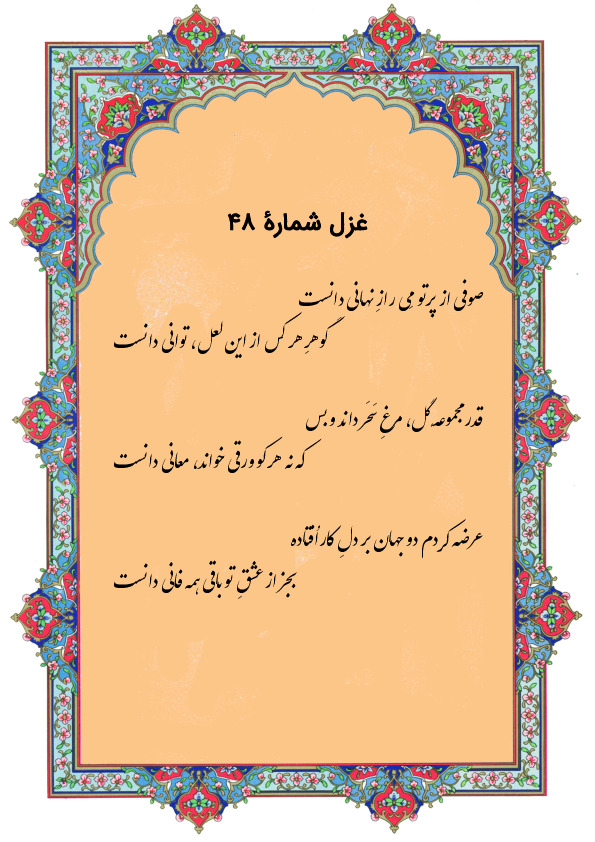 غزل شمارهٔ ۴۸
صوفی از پرتو مِی رازِ نهانی دانست
گوهرِ هر کس از این لعل، توانی دانست
قدر مجموعه گل، مرغِ سَحَر داند و بس
که نه هر کو ورقی خواند، معانی دانست
عرضه کردم دو جهان بر دلِ کار اُفتاده
بجز از عشقِ تو باقی همه فانی دانست